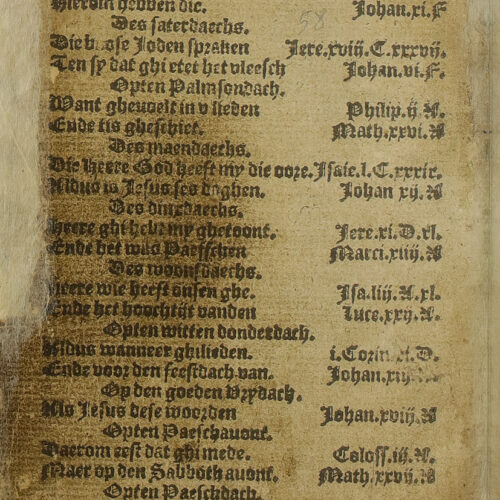 Hierom hebben die. Johan.xi.F
Des saterdaechs.
Die boose Joden spraken Jere.xviij.C.xxxvij.
Ten sy dat ghi etet het vleesch Johan.vi.F.
Opten Palmsondach.
Want ghevoelt in v lieden Philip.ij.A.
Ende tis gheschiet. Math.xxvi.A
Des maendaechs.
Die Heere God heeft my die oore. Isaie.l.C.xxxix.
Aldus is Jesus ses daghen. Johan xij.A
Des dinxdaechs.
Heere ghi hebt my ghetoont. Jere.xi.D.xl.
Ende het was Paesschen Marci.xiiij.A
Des woonsdaechs.
Heere wie heeft onsen ghe. Isa.liij.A.xl.
Ende het hoochtijt vanden Luce.xxij.A.
Opten witten donderdach.
Aldus wanneer ghilieden. i.Corin.xi.D.
Ende voor den feestdach van. Johan.xiij.
Op den goeden Vrydach.
Als Jesus dese woorden Johan.xviij.A
Opten Paeschauont.
Daerom eest dat ghi mede. Coloss.iij.A.
Maer op den Sabboth auont. Math.xxvij.A
Opten Paeschdach.